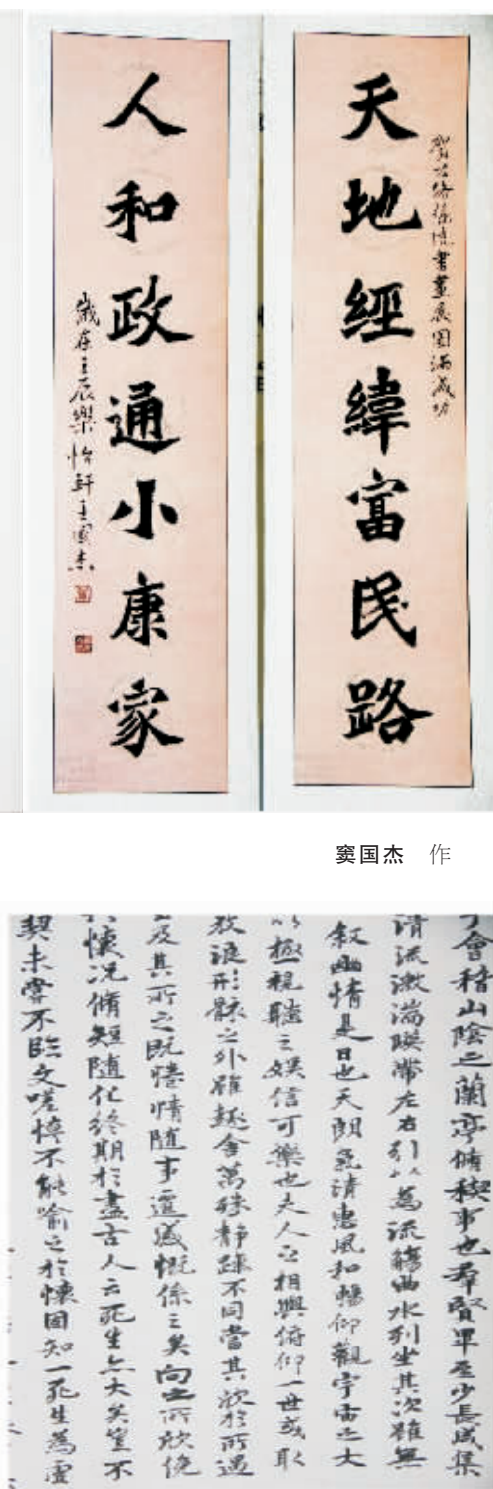 賀書畫展圓滿成功
天地經緯富民路
人和政通小康家
歲在壬辰樂怡軒主國杰
窦国杰 作
會稽山陰之蘭亭脩稧事也羣賢畢至少長咸集
清流激湍暎帶左右引以為流觴曲水列坐其次雖無
叙幽情是日也天朗氣清惠風和暢仰觀宇宙之大
以極視聽之娱信可樂也夫人之相與俯仰一世或取
放浪形骸之外雖趣舍萬殊静躁不同當其欣於所遇
及其所之既惓情隨事遷感慨係之矣向之所欣俛
懷况脩短隨化終期於盡古人云死生亦大矣豈不
契未嘗不臨文嗟悼不能喻之於懷固知一死生為虛